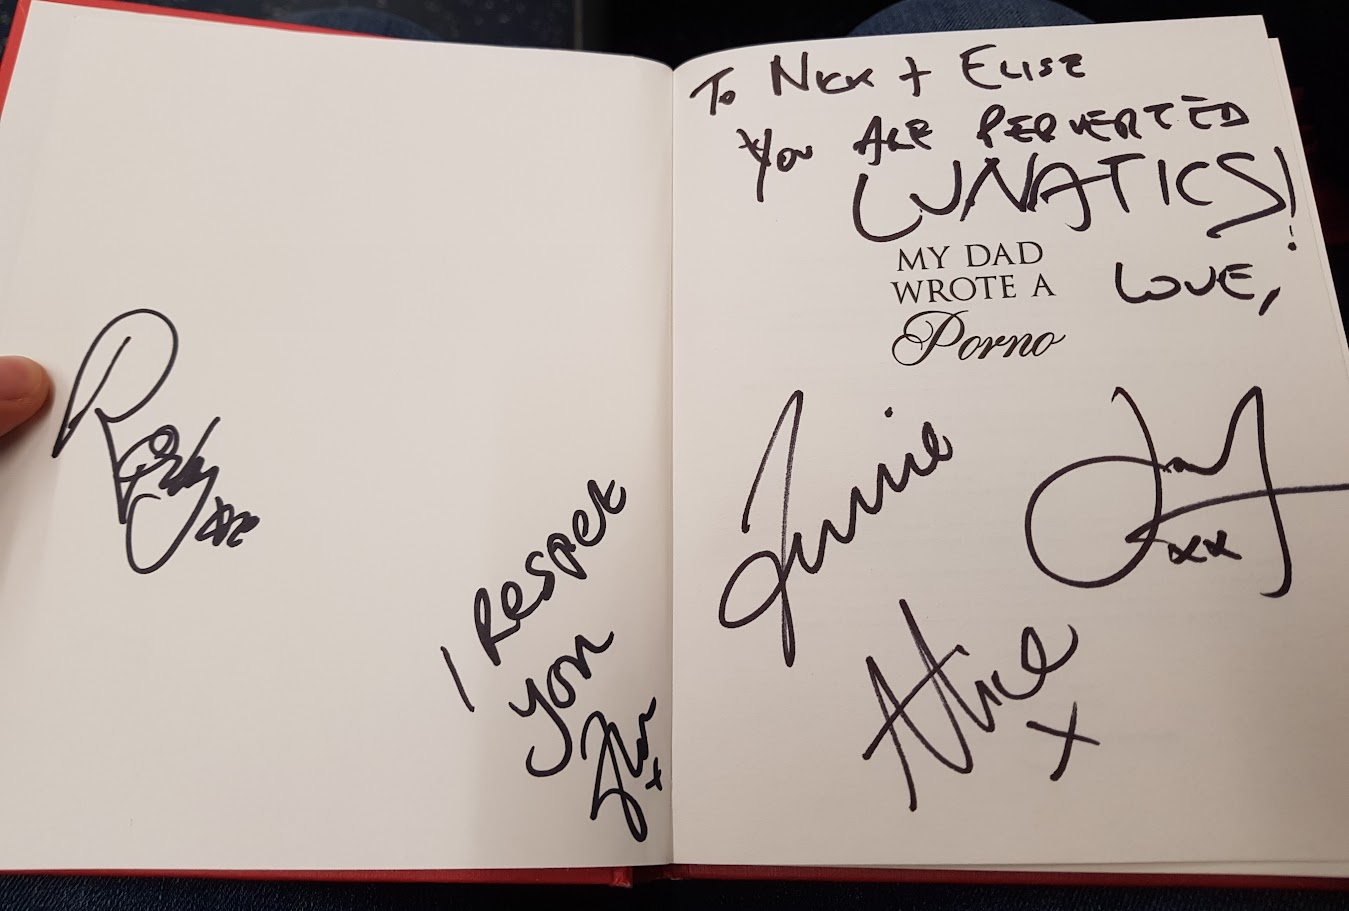 I Respect
you
To Nick + Elise
You ARE PERVERTED
LUNATICS!
MY DAD
WROTE A
Porno
LOVE,
Jamie
xx
Alice
x